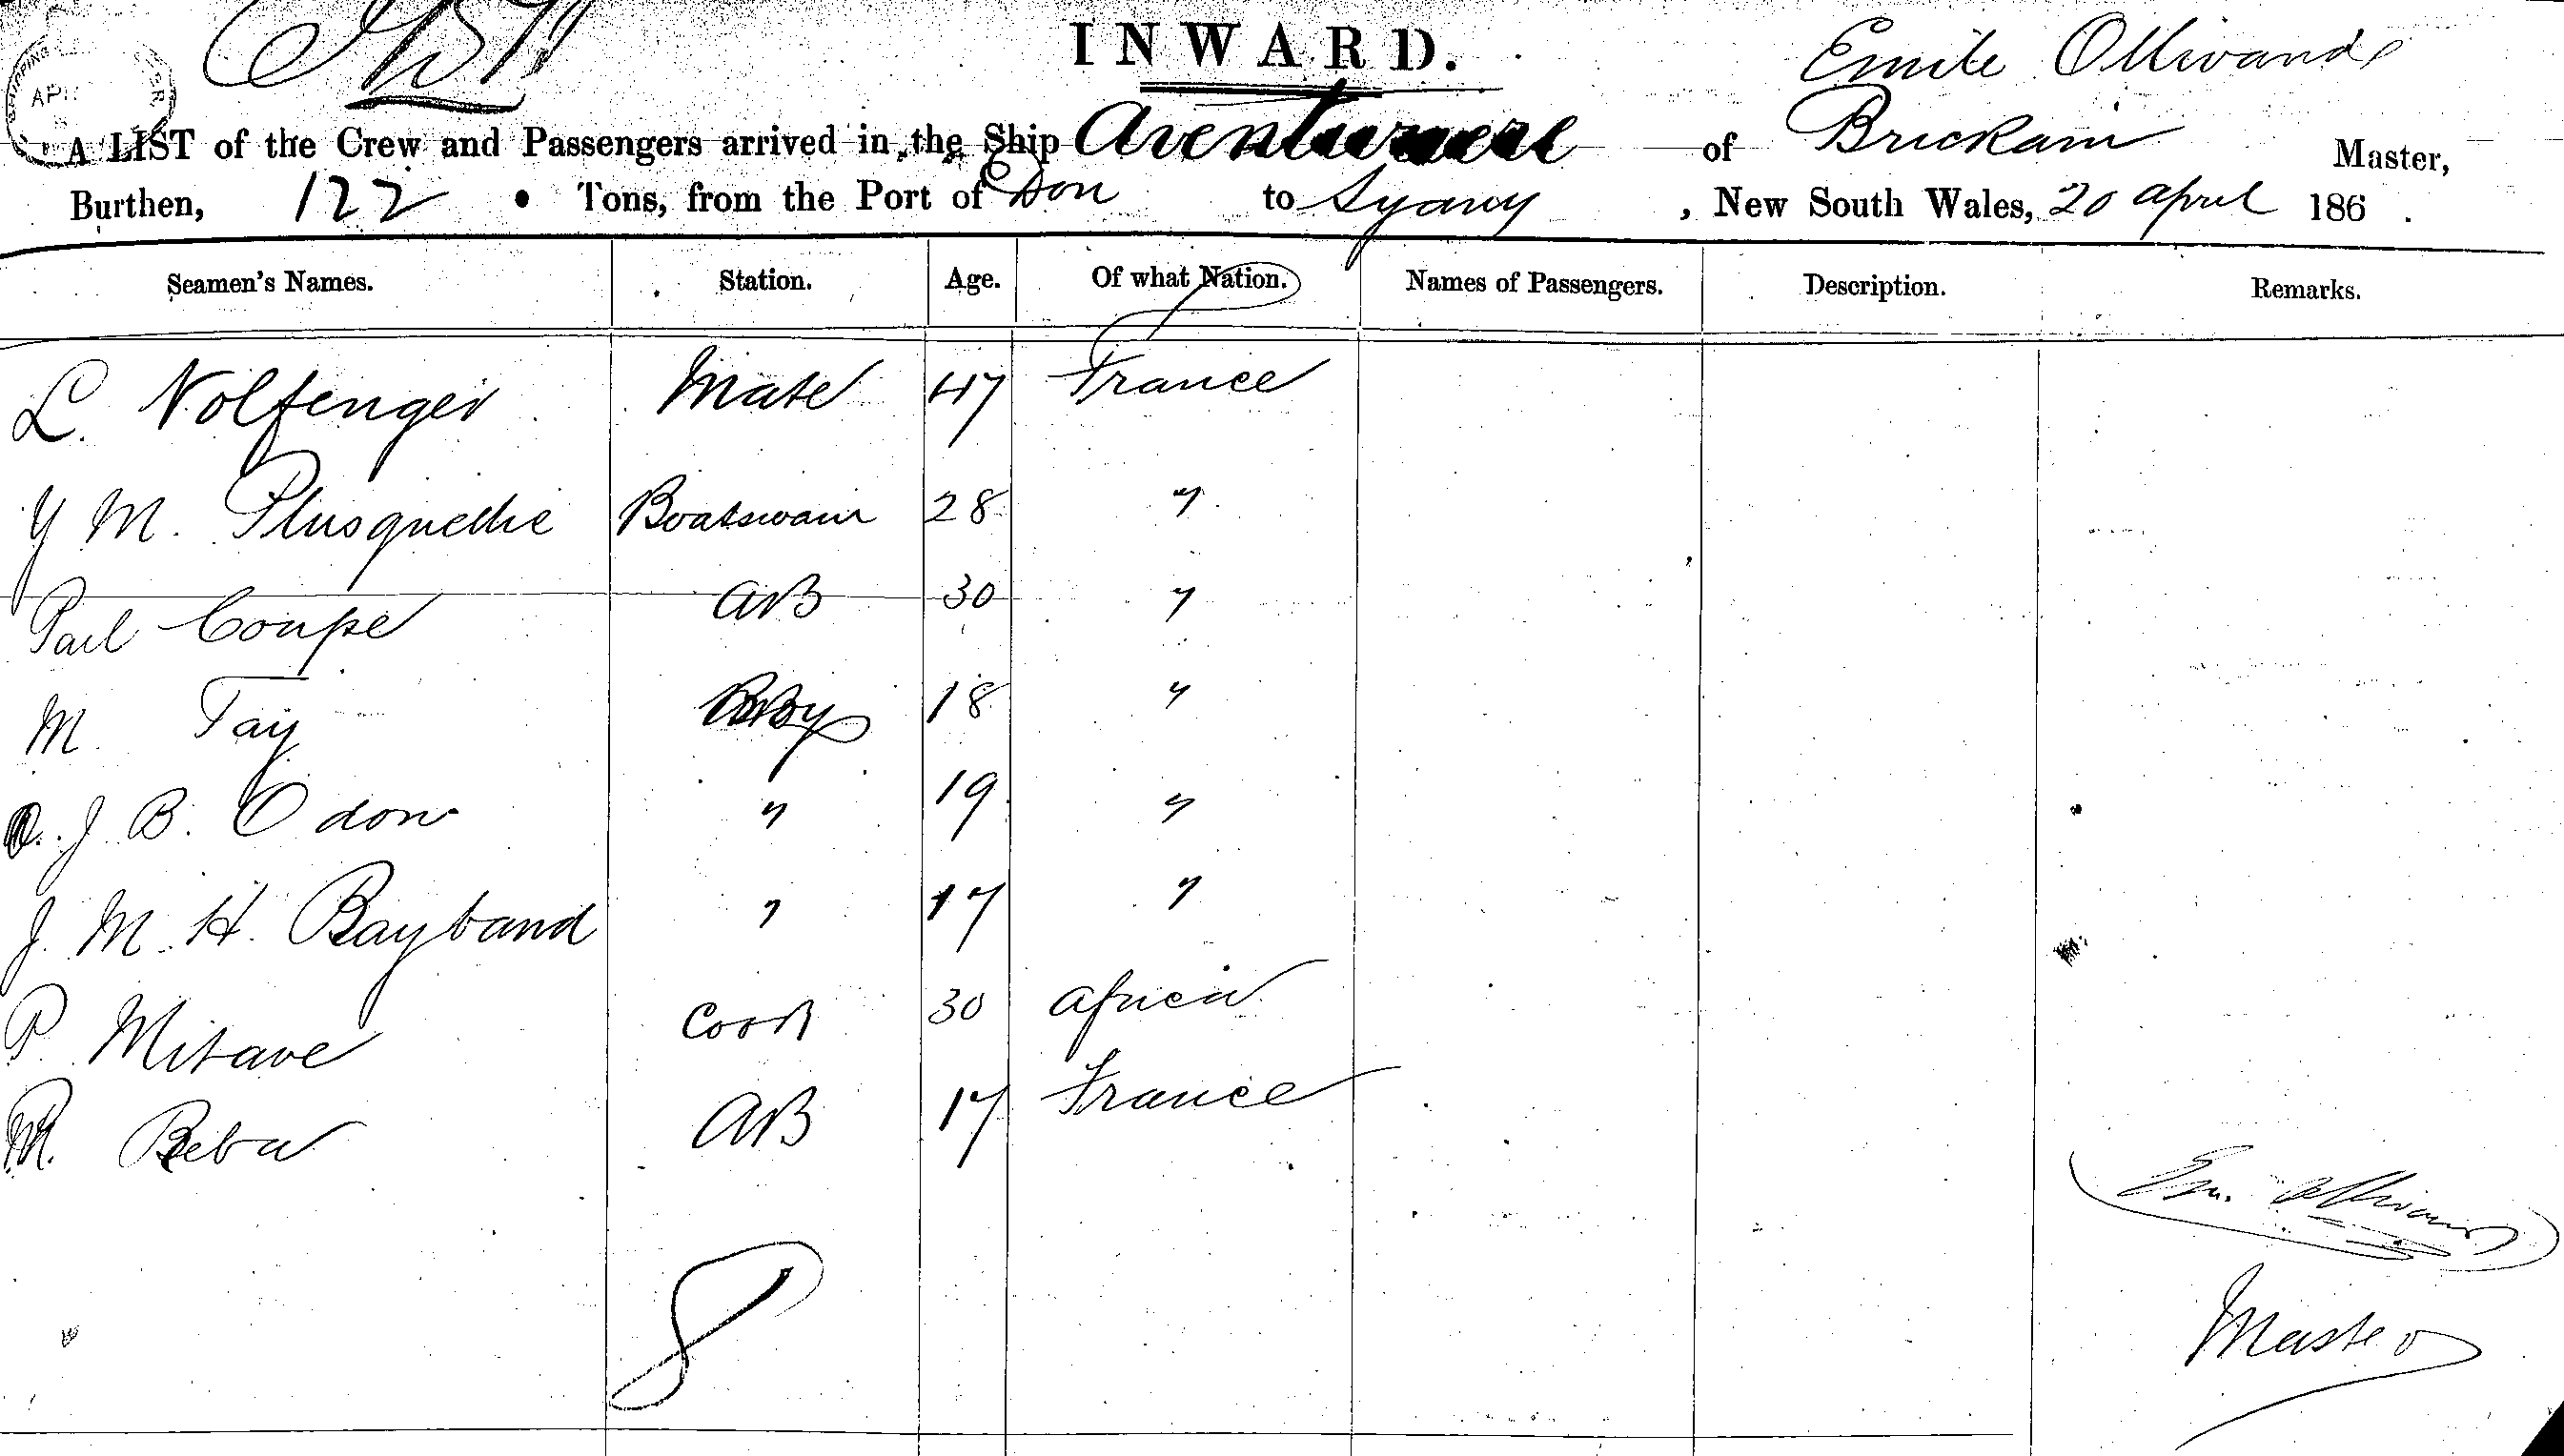 INWARD.
Emile Ollivand
A LIST of the Crew and Passengers arrived in the Ship Aventurere of Brickam Master,
Burthen, 122 Tons, from the Port of Don to Sydny, New South Wales, 20 april 186 .
Seamen's Names. Station. Age. Of what Nation. Names of Passengers. Description. Remarks.
L. Nolfenger Mate 47 France
Y M. Plusquellie Boatswain 28 "
Paul Coupe AB 30 "
M. Tay Boy 18 "
J B. Odon " 19 "
J. M. H. Bayband " 17 "
P Mitave Cook 30 africa
M. Beba AB 17 France
8
Em. Ollivand
Master